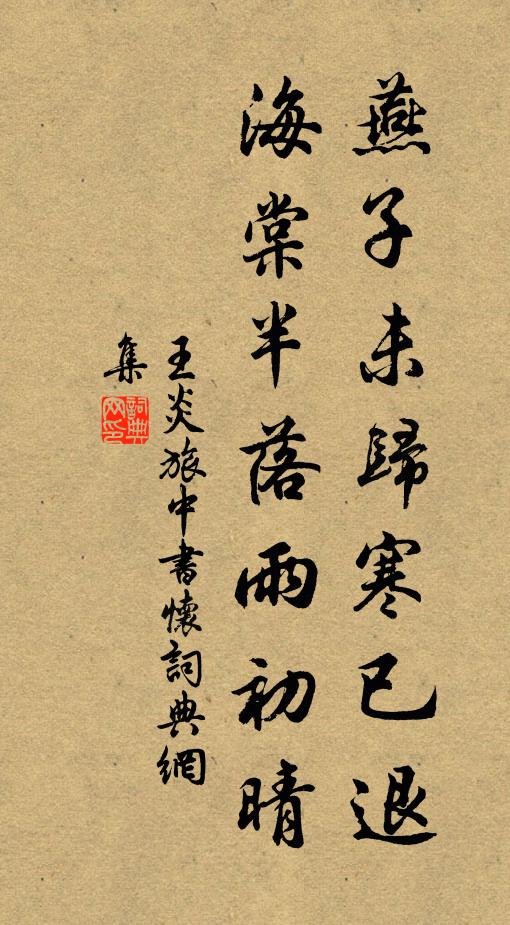 燕子未歸寒已退
海棠半落雨初晴
王炎旅中書懷詞典網
集
詞典
网印